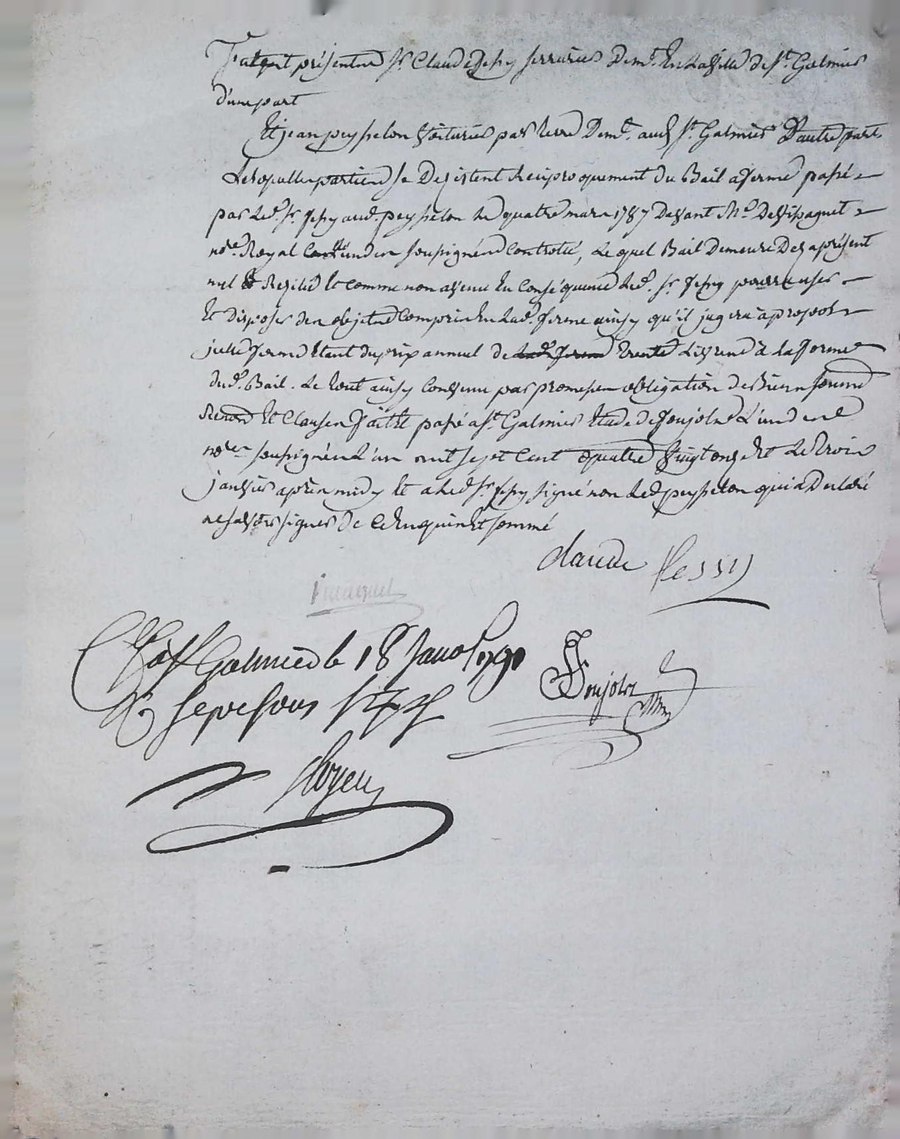 furent présents Sr. Claude Jessy serrurier Demt. En la ville de St. Galmier
d'une part
Et jean peysselon Voiturier par terre Demt. aud. St. Galmier D'autre part
Lesquelles parties se Desistent Reciproquement du Bail a ferme passé
par Led. Sr. Jessy aud. peysselon le quatre mars 1787 Devant Me.
nore. Royal soussignés Controlé, Lequel Bail Demeure Des a présent
nul & Resilié Et comme non avenu En Conséquence Led. Sr. Jessy pourra user
Et disposer des objets Compris En Lad. ferme ainsy qu'il jugera a propos
du prix annuel de trente Livres à la forme
dud. Bail. Le tout ainsy Convenu par promesses obligation de Biens soumis
Renon Et Clauses fait Et passé a St. Galmier Etude de Soujolz L'un des
nores. soussignés L'an mil sept Cent quatre Vingt onze Et Le trois
janvier après midy Et a Led. Sr. Jessy signé non Led. peysselon qui a Declaré
ne savoir signer de ce Enquis Et sommé
claude Jessy
St. Galmier le 18 Janv. 1791
R. sous
Soujolz